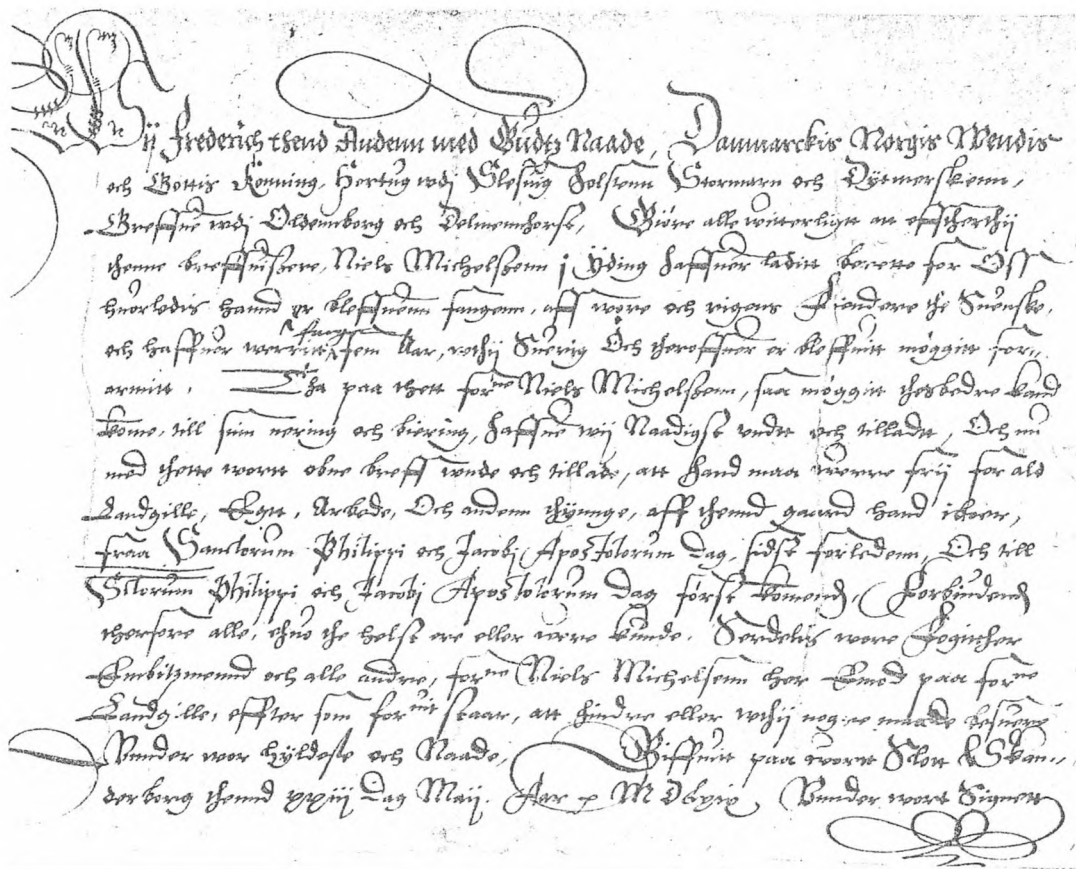 Wij Frederich thend Andenn med Gudtz Naade, Danmarckis Norgis Wendis
och Gottis Konning, Hertug wdj Slesuig Holstenn Stormarn och Dytmerskenn,
Greffue wdj Oldennborg och Delmenhorst, Giøre alle witterligtt att effttherthij
thenne breffuiszere, Niels Michelszenn j Yding haffuer laditt berette for Oss
huorledis hannd er bleffuenn fangenn, aff wore och rigens Fiendere the Suenske,
och haffuer werritt fangen fem Aar, wthij Suerrig Och theroffuer er bleffuitt møggitt for„
armitt. Tha paa thett forne Niels Michelszenn, saa møggitt thesbedre kand
komme, till sinn nering och biering, haffue wij Naadigst undtt och tilladtt, Och nu
med thette wortt obne breff unde och tillade, att hand maa werre frij for ald
Landgille, Egtt, Arbede, Och andenn thynnge, aff thennd gaard hand iboer,
fraa Sanctorum Philippi och Jacobj Apostolorum dag, sidst forledenn, Och till
Sctorum Philippi och Jacobj Apostolorum dag først komend, Forbiudend
therfore alle, ehuo the helst ere eller were kunde, Serdelis wore Fogitther
Embitzmennd och alle andre, forne Niels Michelsenn her Emod paa forne
Landgille, effter som foruit staar, att hindre eller wthij nogre maade besuere
Vnnder wor hyldeste och Naade, Giffuitt paa wortt Slott Skan„
derborg thennd xxiij dag Maij. Aar p M D Lxix, Vnnder wortt Signett